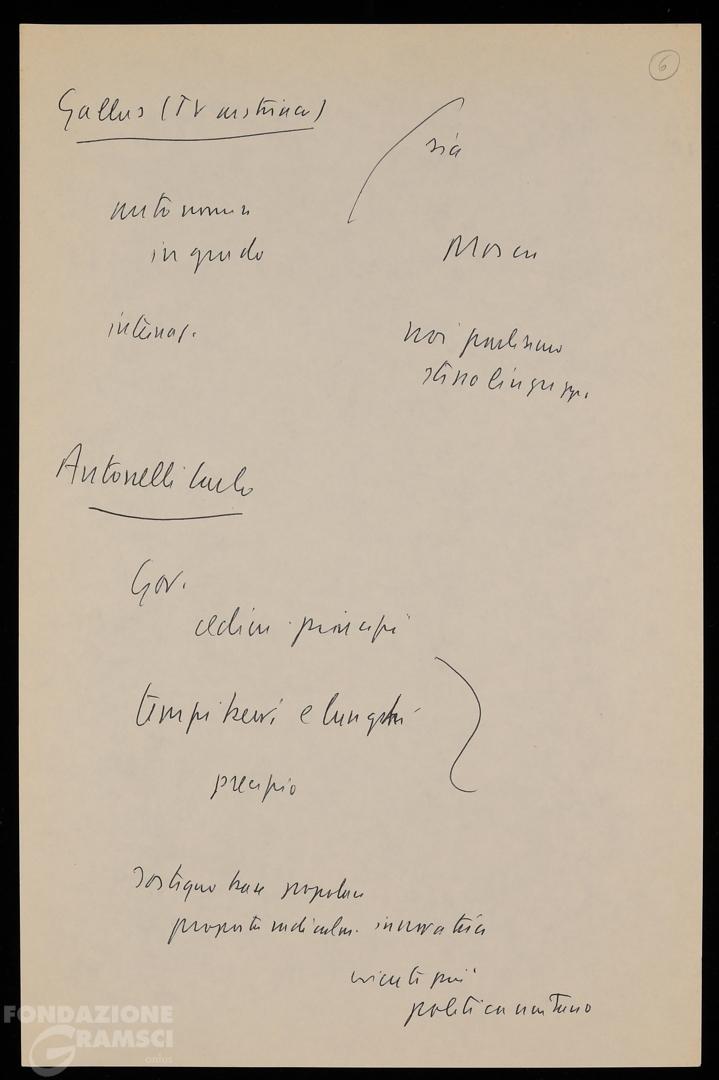 6
Gallus (TV austriaca)
sia
autonomia
in grado
Mosca
internaz.
noi parliamo
stesso lingua
Antonelli Carlo
Gov.
principi
tempi brevi e lunghi
sostegno base popolare
proposta radicalm. innovativa
politica
FONDAZIONE
GRAMSCI
onlus